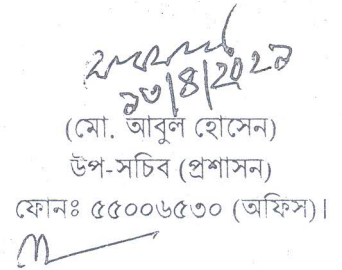 ১৩/৪/২০২১
(মো. আবুল হোসেন)
উপ-সচিব (প্রশাসন)
ফোনঃ ৫৫০০৬৫৩০ (অফিস)।